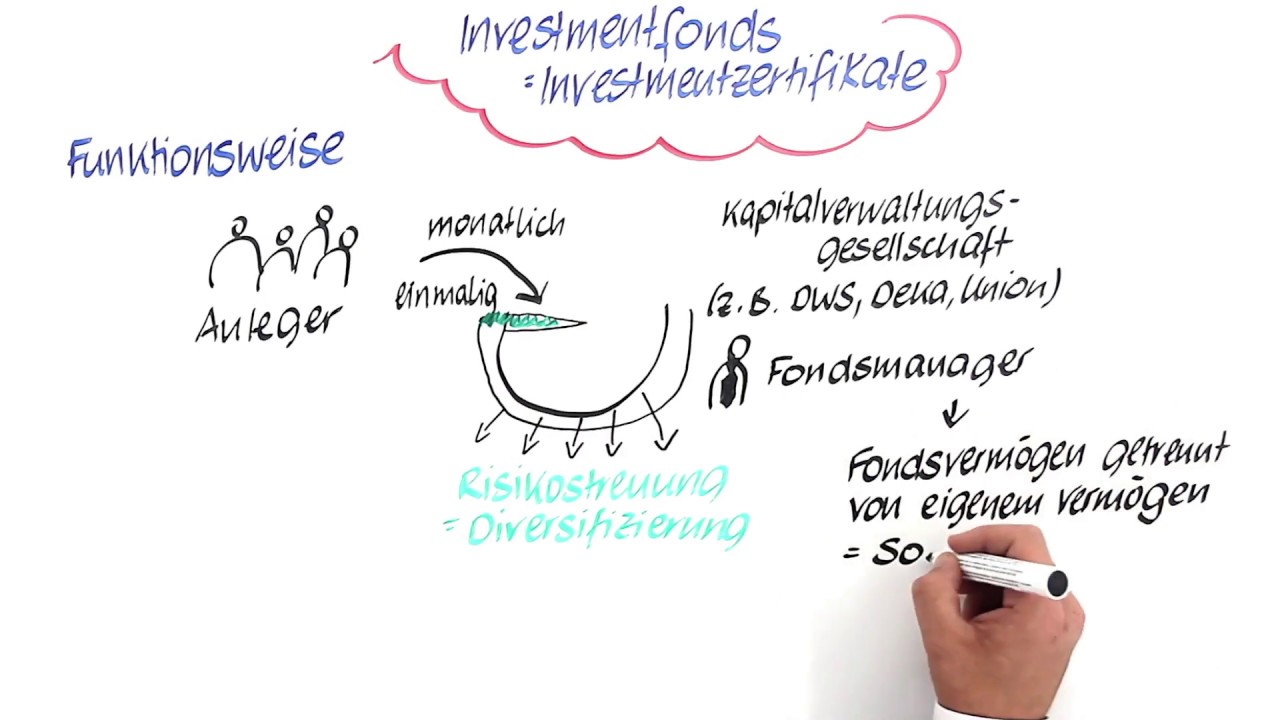 Investmentfonds
= Investmentzertifikate
Funktionsweise
Anleger
monatlich
einmalig
Risikostreuung
= Diversifizierung
Kapitalverwaltungs-
gesellschaft
(z.B. DWS, Deka, Union)
Fondsmanager
Fondsvermögen getrennt
von eigenem Vermögen
= so